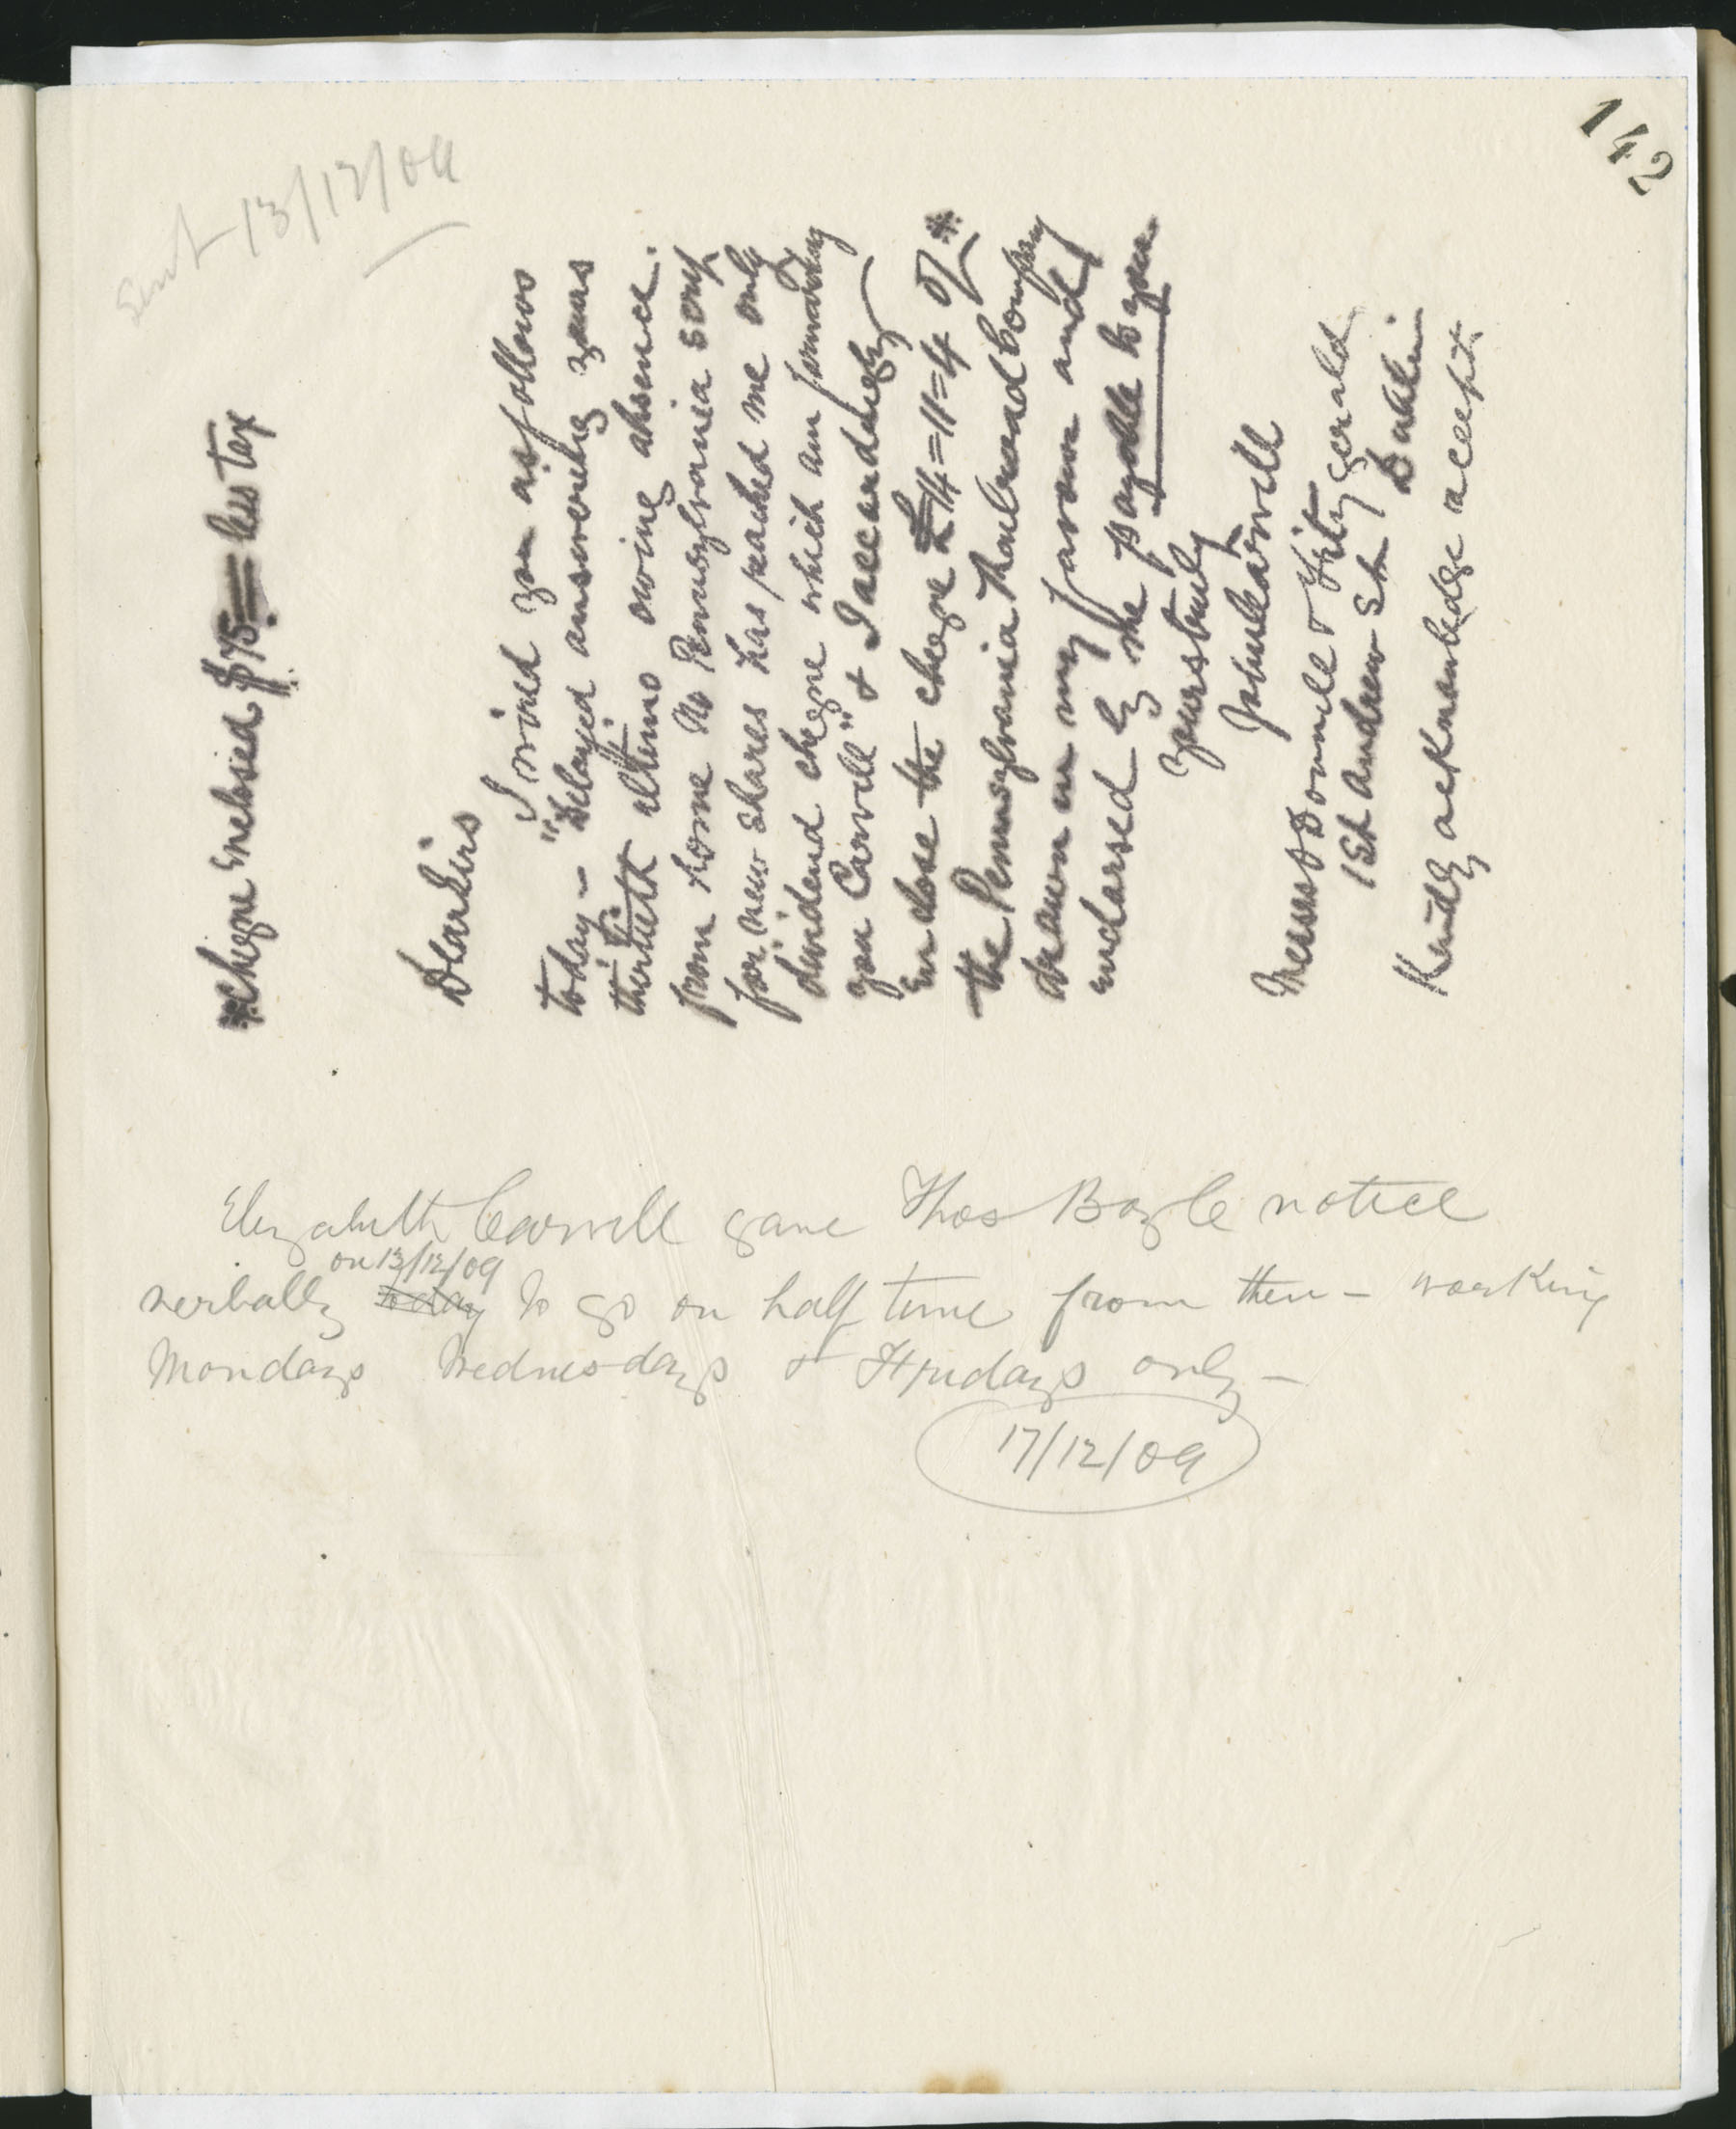 142
Sent 13/12/09
*Cheque Enclosed $75 = less tax
Dear Sirs
I wired you as follows
today — "Delayed answering yours
thirtieth ultimo owing absence
from home no Pennsylvania scrip
for new shares has reached me only
dividend cheque which am forwarding
you Carvill" & I accordingly
Enclose the cheque £14=11=4 of *
the Pennsylvania Railroad Company
drawn in my favour and
endorsed by me payable to you.
Yours truly
John Carvill
Messrs Donnell & Fitzgerald
15 St Andrew St Dublin
Kindly acknowledge receipt.
Elizabeth Carvill gave Thos Boyle notice
on 13/12/09
verbally today to go on half time from then — working
Mondays Wednesdays & Fridays only —
17/12/09